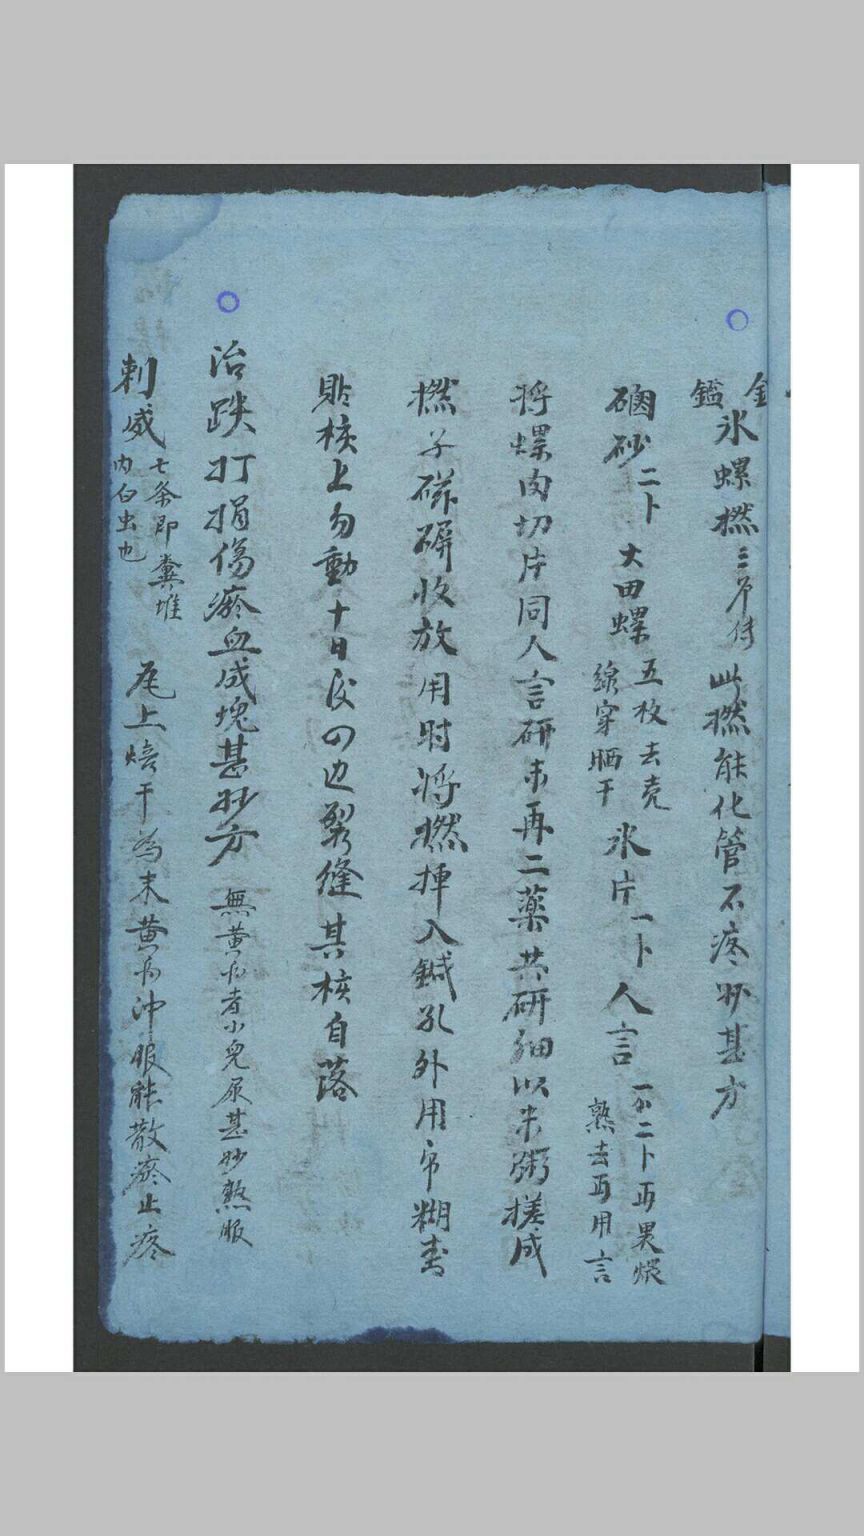 金
鑑
氷螺撚 此撚能化管不疼妙甚方
硇砂二卜 大田螺 五枚去壳 線穿晒干 氷片一卜 人言 熟去面用言
将螺肉切片同人言研末再二薬共研細以米粥搓成
撚子磁礶收放用时将撚揷入鍼孔外用帋糊
貼核上勿動十日后四边裂缝其核自落
治跌打損傷瘀血成塊甚妙方 無黄酒者小兒尿甚妙熱服
刺威 七条即糞堆 内白虫也 尾上焙干為末黄酒冲服能散瘀止疼